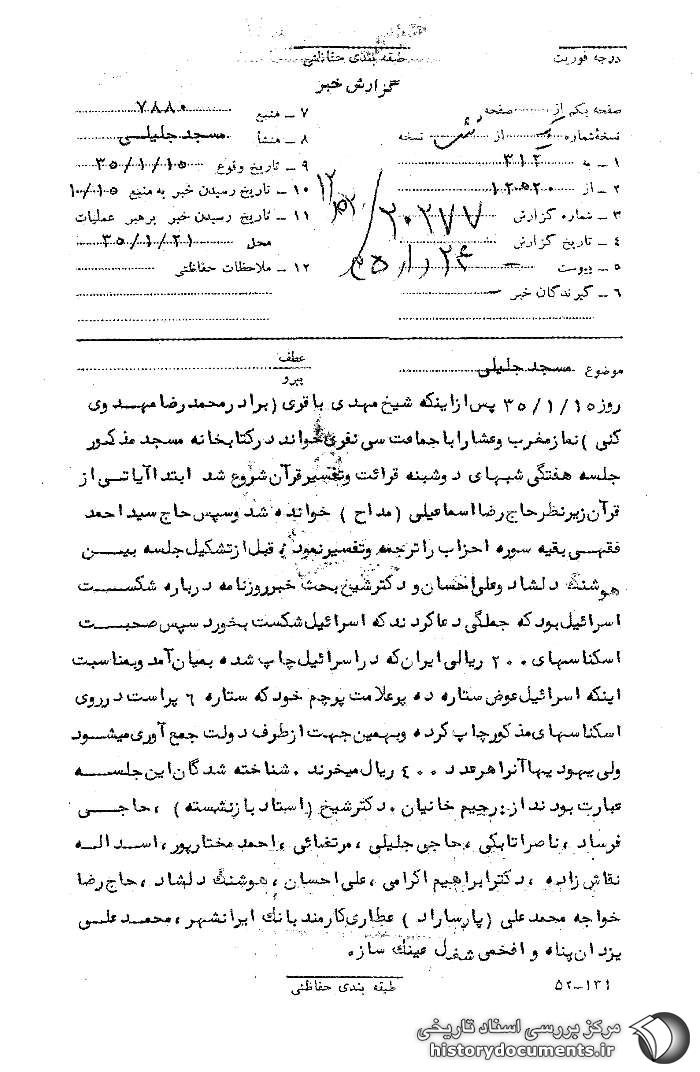 درجه فوریت
طبقه بندی حفاظتی
گزارش خبر
صفحه یکم از صفحه
نسخه شماره از نسخه
۱ ـ به ۳۱۲
۲ ـ از ۱۲ﻫ۲۰
۳ ـ شماره گزارش ۲۰۲۷۷
۴ ـ تاریخ گزارش
۵ ـ پیوست ـ
۶ ـ گیرندگان خبر ـ
۷ ـ منبع ۷۸۸۰
۸ ـ منشأ مسجد جلیلی
۹ ـ تاریخ وقوع ۳۵/۱/۱۵
۱۰ ـ تاریخ رسیدن خبر به منبع ۱۰/۱۵
۱۱ ـ تاریخ رسیدن خبر برهبر عملیات
محل ۳۵/۱/۲۱
۱۲ ـ ملاحظات حفاظتی
موضوع مسجد جلیلی
عطف
پیرو
روز ۳۵/۱/۱۵ پس از اینکه شیخ مهدی باقری (برادر محمدرضا مهدوی
کنی) نماز مغرب و عشا را با جماعت سی نفری خواند در کتابخانه مسجد مذکور
جلسه هفتگی شبهای دوشنبه قرائت و تفسیر قرآن شروع شد ابتدا آیاتی از
قرآن زیر نظر حاج رضا اسماعیلی (مداح) خوانده شد و سپس حاج سید احمد
فقهی بقیه سوره احزاب را ترجمه و تفسیر نمود. قبل از تشکیل جلسه بین
هوشنگ دلشاد و علی احسان و دکتر شیخ بحث خبر روزنامه درباره شکست
اسرائیل بود که جملگی دعا کردند که اسرائیل شکست بخورد سپس صحبت
اسکناسهای ۲۰۰ ریالی ایران که در اسرائیل چاپ شده بمیان آمد و بمناسبت
اینکه اسرائیل عوض ستاره ده پر علامت پرچم خود که ستاره ۶ پر است در روی
اسکناسهای مذکور چاپ کرده و بهمین جهت از طرف دولت جمع آوری میشود
ولی یهودیها آنرا هر عدد ۴۰۰ ریال میخرند. شناخته شدگان این جلسه
عبارت بودند از: رحیم خانیان. دکتر شیخ (استاد بازنشسته)، حاجی
فرساد، ناصر اتابکی، حاجی جلیلی، مرتضائی، احمد مختارپور، اسداله
نقاش زاده، دکتر ابراهیم اکرامی، علی احسان، هوشنگ دلشاد، حاج رضا
خواجه محمد علی (پارساراد) عطاری کارمند بانک ایرانشهر، محمد علی
یزدان پناه و افخمی شغل عینک سازه
طبقه بندی حفاظتی
۵۲-۱۳۱
مرکز بررسی اسناد تاریخی
historydocuments.ir